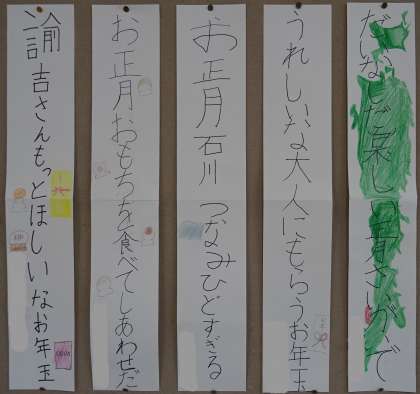 だいなしだ楽し一月さいがいで
うれしいな大人にもらうお年玉
お正月石川つなみひどすぎる
お正月おもちを食べてしあわせだ
諭吉さんもっとほしいなお年玉